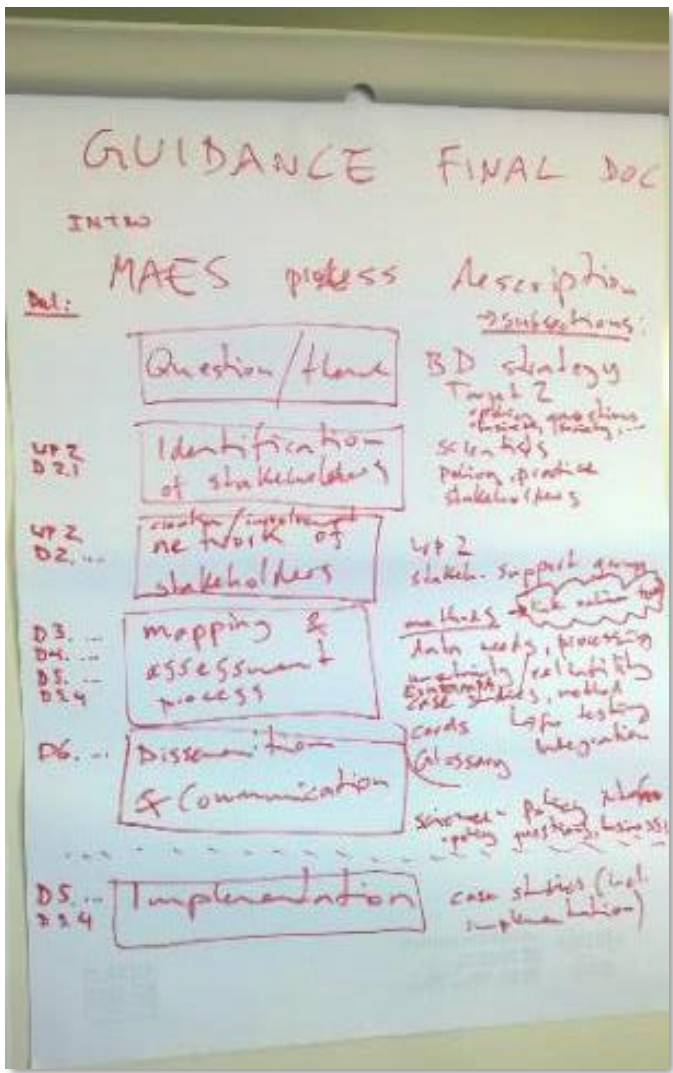 GUIDANCE FINAL DOC
INTRO
MAES process description
Del:
→ subsections:
Question/theme
BD strategy
Target 2
policy questions
business, society, ...
WP2
D2.1
Identification
of stakeholders
scientists
policy, practice
stakeholders
WP2
D2. ...
creation/involvement
network of
stakeholders
WP2
stakeh. support group
D3. ...
D4. ...
D5. ...
D3.4
mapping &
assessment
process
methods →
data needs, processing
uncertainty/reliability
case studies, method
cards
↳ for testing
Integration
Glossary
D6. ...
Dissemination
& Communication
science - policy
policy questions, business
D5. ...
D3.4
Implementation
case studies (incl.
implementation)